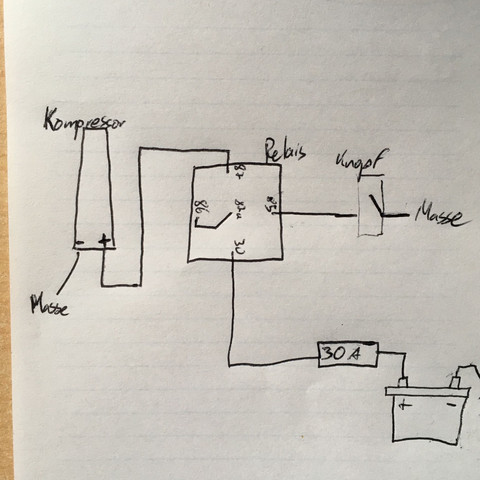 Kompressor
Relais
Knopf
87
86
85
Masse
- +
30
Masse
30 A
+ -